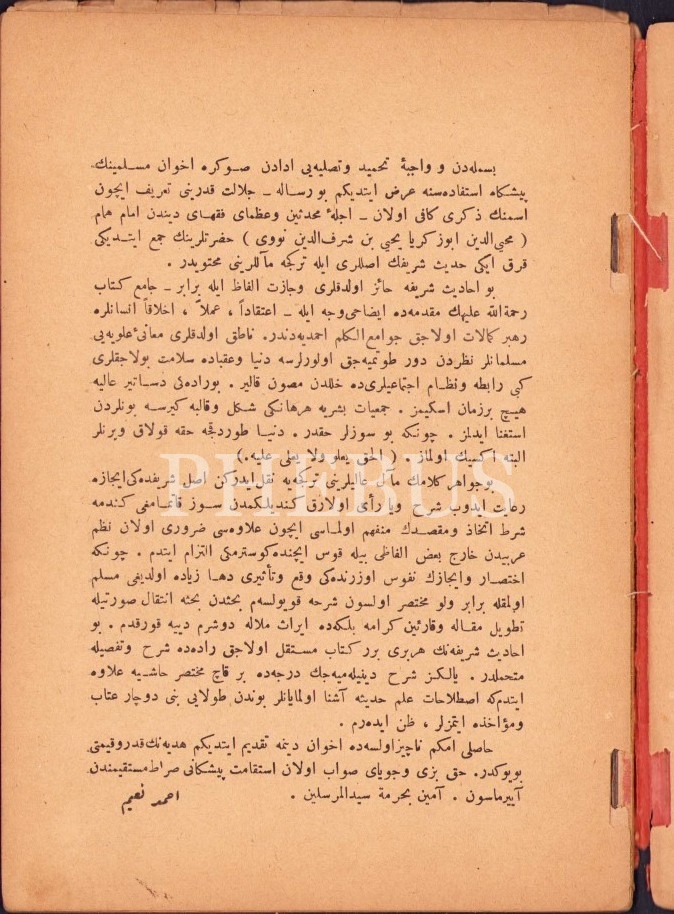 بسمله‌دن و واجبهٔ تحمید وتصلیه‌یی ادادن صوكره اخوان مسلمینك
پیشكاه استفاده‌سنه عرض ایتدیكم بو رساله ـ جلالت قدرینی تعریف ایچون
اسمنك ذكری كافی اولان ـ اجلهٔ محدثین وعظمای فقهای دیندن امام همام
( محیی الدین ابوزكریا یحیی بن شرف‌الدین نووی ) حضرتلرینك جمع ایتدیكی
قرق ایكی حدیث شریفك اصللری ایله تركجه مآللرینی محتویدر .
بو احادیث شریفه حائز اولدقلری وجازت الفاظ ایله برابر ـ جامع كتاب
رحمة‌الله علیهك مقدمه‌ده ایضاحی وجه ایله ـ اعتقاداً ، عملاً ، اخلاقاً انسانلره
رهبر كمالات اولاجق جوامع‌الكلم احمدیه‌دندر. ناطق اولدقلری معانئ علویه‌یی
مسلمانلر نظردن دور طوتمیه‌جق اولورلرسه دنیا وعقباده سلامت بولاجقلری
كبی رابطه ونظام اجتماعیلری‌ده خللدن مصون قالیر . بوراده‌كی دساتیر عالیه
هیچ برزمان اسكیمز . جمعیات بشریه هرهانكی شكل وقالبه كیرسه بونلردن
استغنا ایدلمز . چونكه بو سوزلر حقدر . دنیا طوردقجه حقه قولاق ویرنلر
البته اكسیك اولماز . ( الحق یعلو ولا یعلی علیه .)
بوجواهر كلامك مآل عالیلرینی تركجه‌یه نقل‌ایدركن اصل شریفده‌كی‌ایجازه
رعایت ایدوب شرح ویا رأی اولارق كندیلكمدن سوز قاتمامغی كندمه
شرط اتخاذ ومقصدك منفهم اولماسی ایچون علاوه‌سی ضروری اولان نظم
عربیدن خارج بعض الفاظی بیله قوس ایچنده‌كوسترمكی التزام ایتدم . چونكه
اختصار وایجازك نفوس اوزرنده‌كی وقع وتأثیری دها زیاده اولدیغی مسلم
اولمقله برابر ولو مختصر اولسون شرحه قویولسه‌م بحثدن بحثه انتقال صورتیله
تطویل مقاله وقارئین كرامه بلكه‌ده ایراث ملاله دوشرم دییه قورقدم . بو
احادیث شریفه‌نك هربری برر كتاب مستقل اولاجق راده‌ده شرح وتفصیله
متحملدر . یالكز شرح دینیله‌میه‌جك درجه‌ده بر قاچ مختصر حاشیه علاوه
ایتدم‌كه اصطلاحات علم حدیثه آشنا اولمایانلر بوندن طولایی بنی دوچار عتاب
ومؤاخذه ایتمزلر ، ظن ایده‌رم .
حاصلی امكم ناچیزاولسه‌ده اخوان دینمه تقدیم ایتدیكم هدیه‌نك‌قدروقیمتی
بویوكدر. حق بزی وجویای صواب اولان استقامت پیشكانی صراط‌مستقیمندن
آییرماسون . آمین بحرمة سیدالمرسلین .
احمد نعیم
PHEBUS